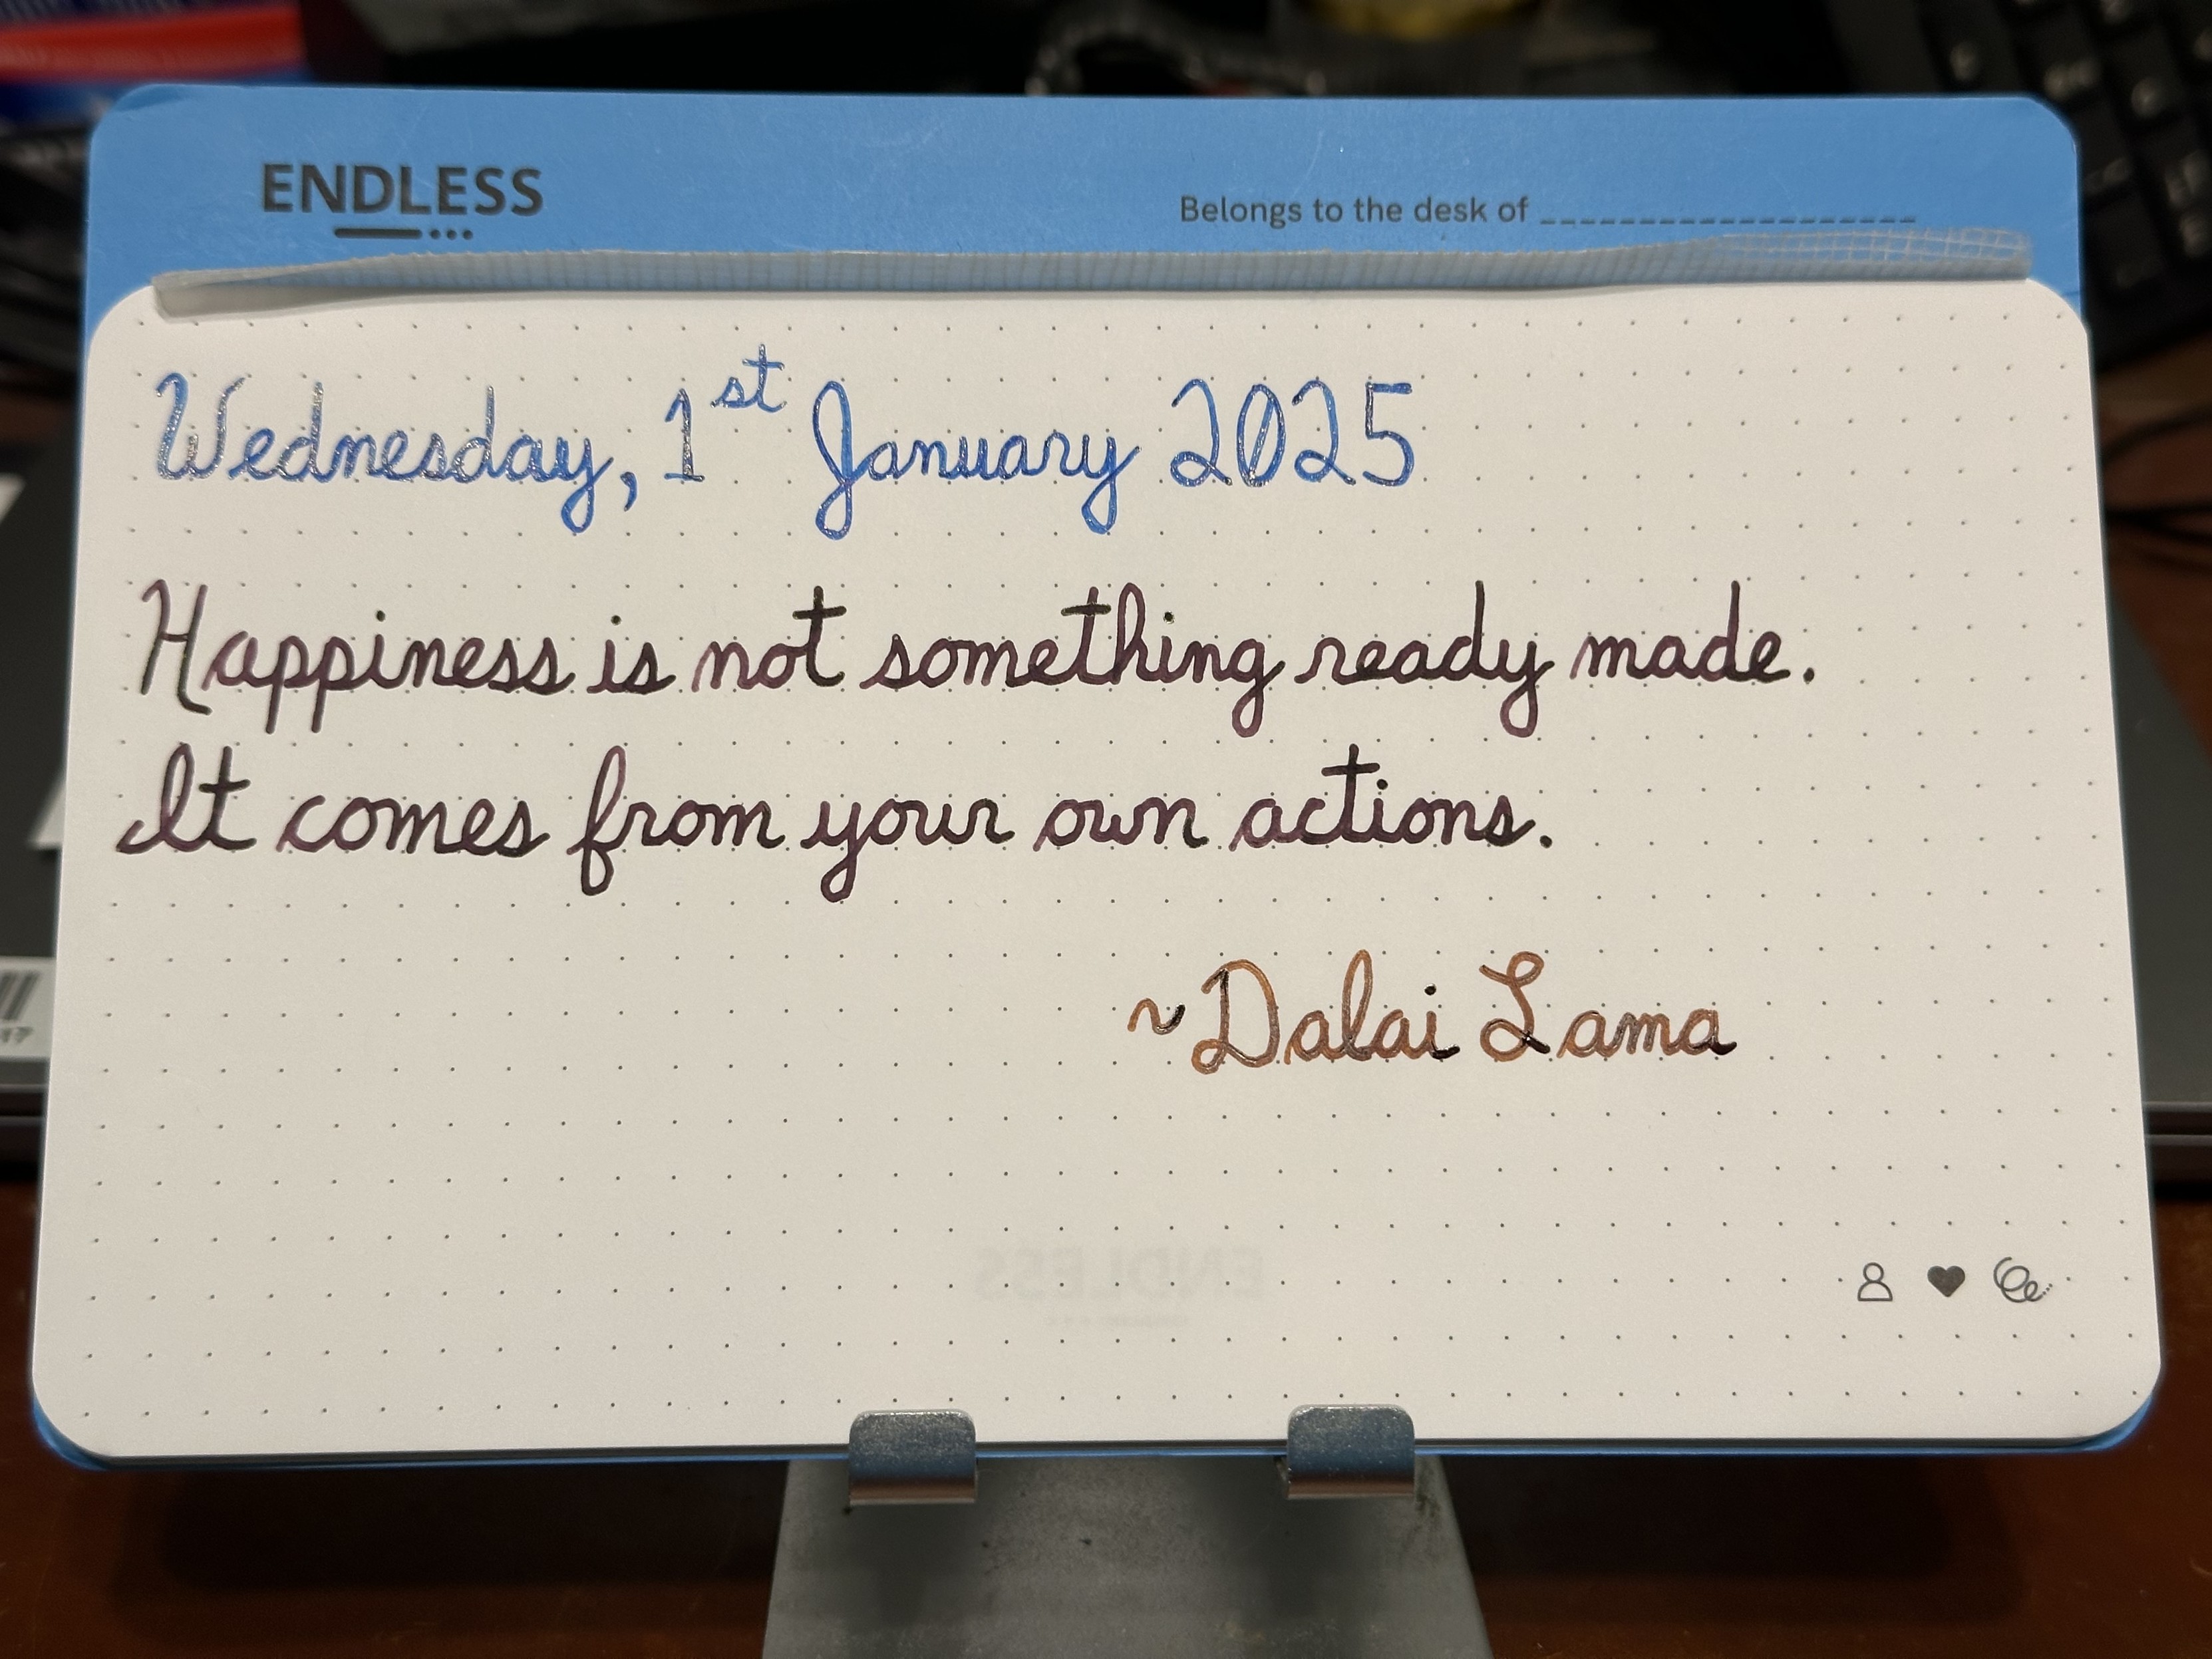 ENDLESS
Belongs to the desk of ___________________
Wednesday, 1st January 2025
Happiness is not something ready made.
It comes from your own actions.
~Dalai Lama
ENDLESS